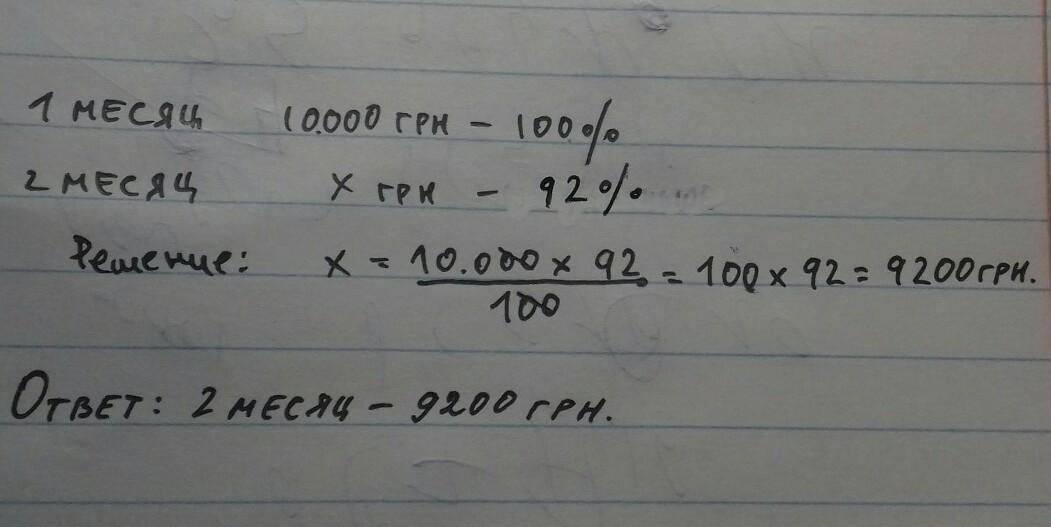 1 МЕСЯЦ 10.000 ГРН - 100%
2 МЕСЯЦ X ГРН - 92%
Решение: X = 10.000 x 92 / 100 = 100 x 92 = 9200 ГРН.
ОТВЕТ: 2 МЕСЯЦ - 9200 ГРН.